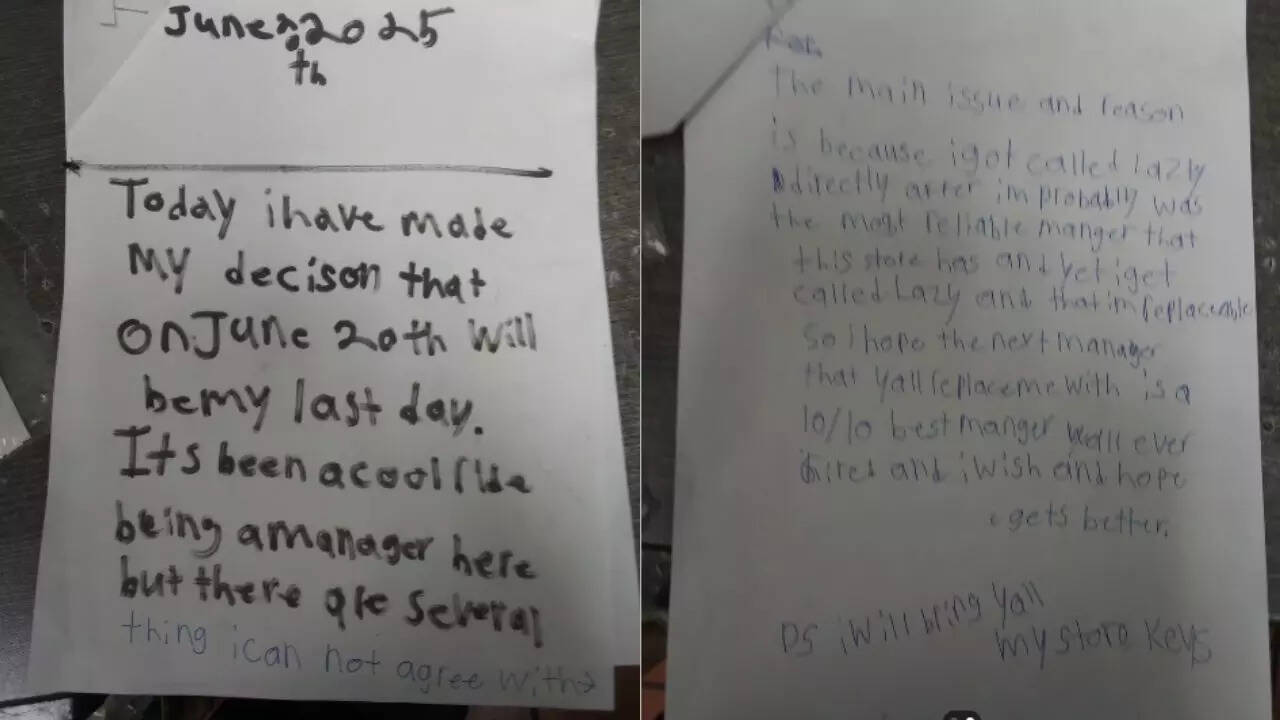 June 2025
th
Today i have made
My decison that
on June 20th will
be my last day.
Its been a cool ride
being a manager here
but there are several
thing i can not agree with→
The main issue and reason
is because i got called Lazly
directly after im probablly was
the most reliable manger that
this store has and yet i get
called Lazy and that im replaceable
So i hope the next manager
that yall replace me with is a
10/10 best manger yall ever
hired and i wish and hope
gets better.
PS i will bring yall
my store keys